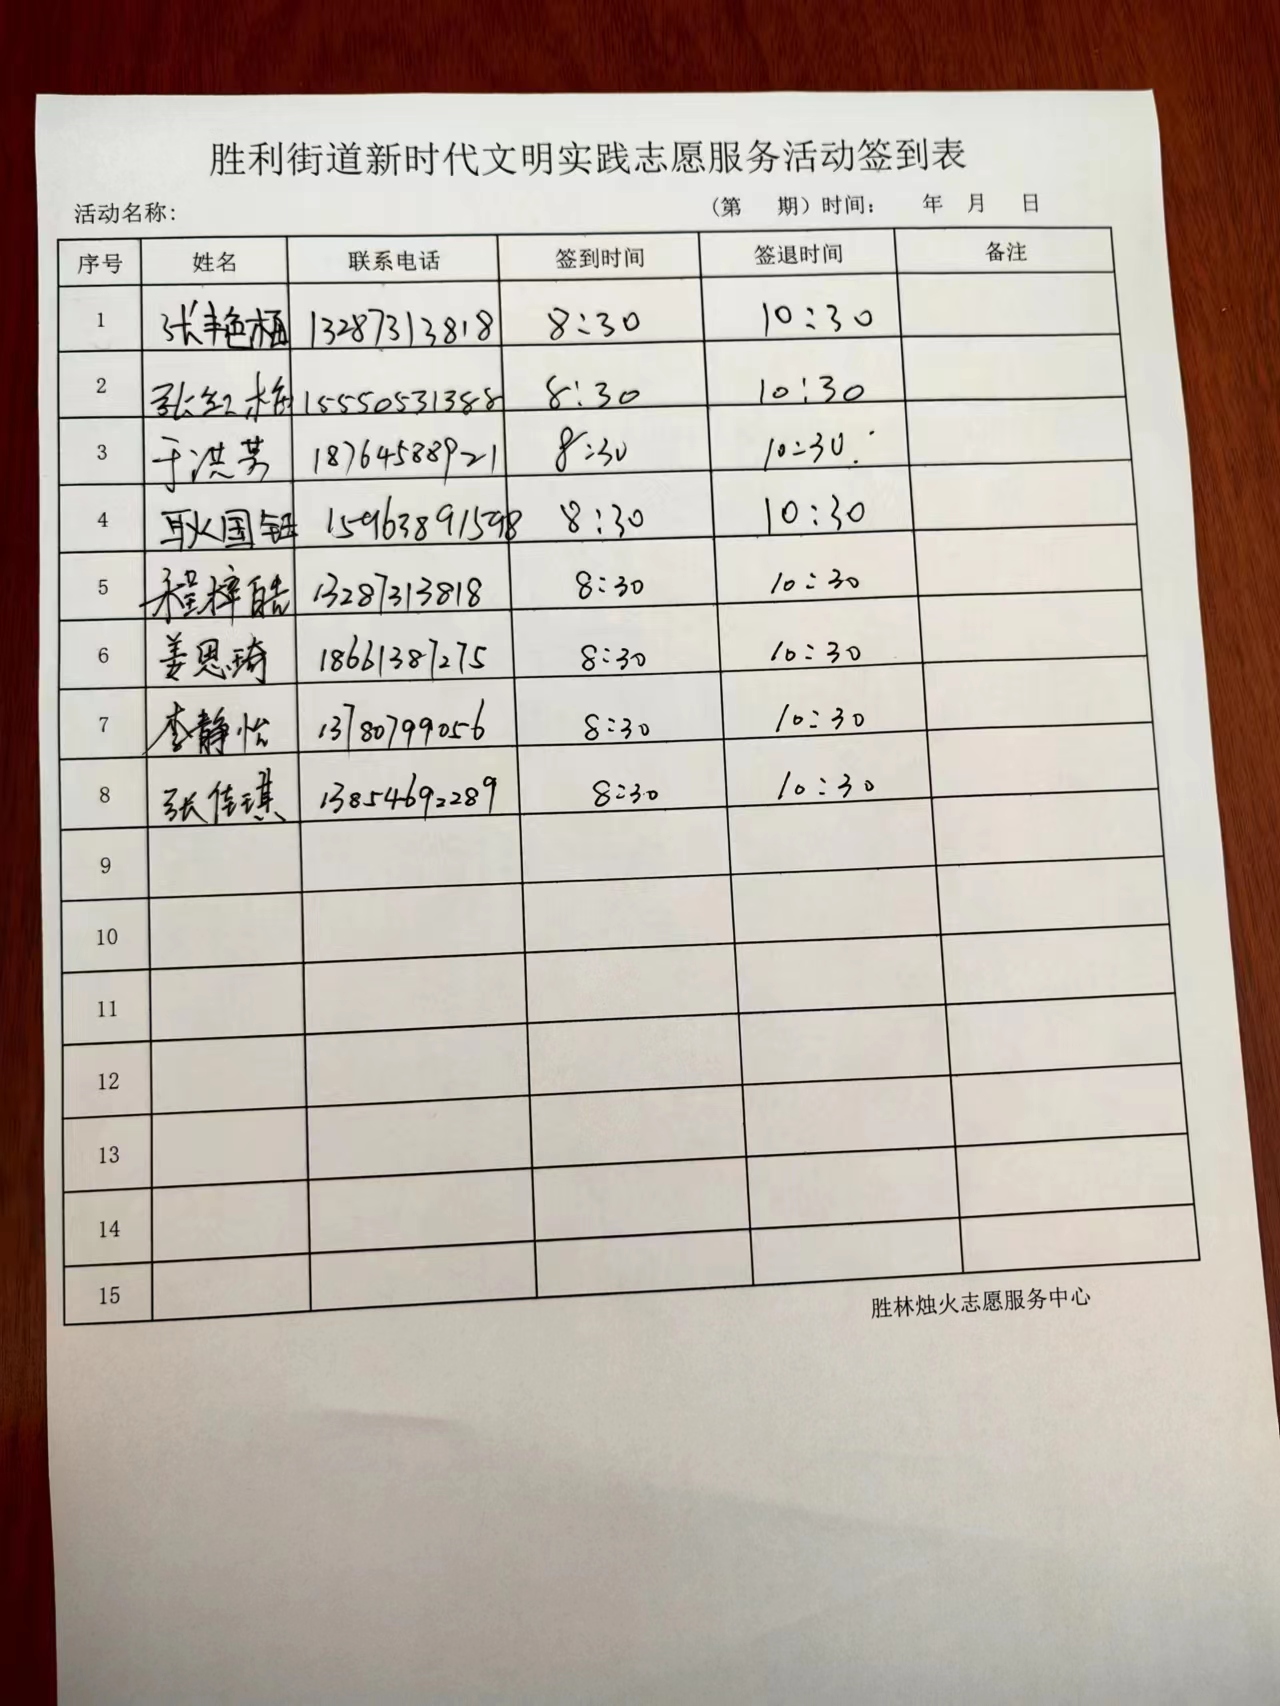 胜利街道新时代文明实践志愿服务活动签到表
活动名称: （第 期）时间: 年 月 日
序号 姓名 联系电话 签到时间 签退时间 备注
1 张艳梅 13287313818 8:30 10:30
2 张红梅 15550531388 8:30 10:30
3 于洪芳 18764588921 8:30 10:30
4 耿国钰 15963891598 8:30 10:30
5 程梓皓 13287313818 8:30 10:30
6 姜思琦 18661387275 8:30 10:30
7 李静怡 13780799056 8:30 10:30
8 张佳琪 13854692289 8:30 10:30
9
10
11
12
13
14
15
胜林烛火志愿服务中心